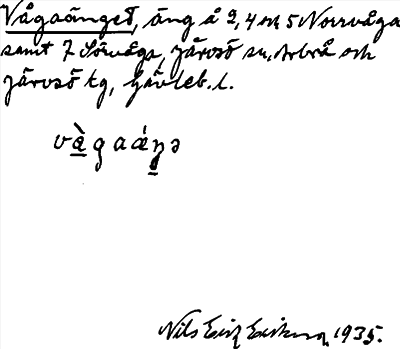 Vågaänget, äng å 2, 4 och 5 Norrvåga
samt 7 Sörvåga, Järvsö sn, Arbrå och
Järvsö tg, Gävleb. l.
vàgaáŋə
Nils Erik Eriksson 1935.